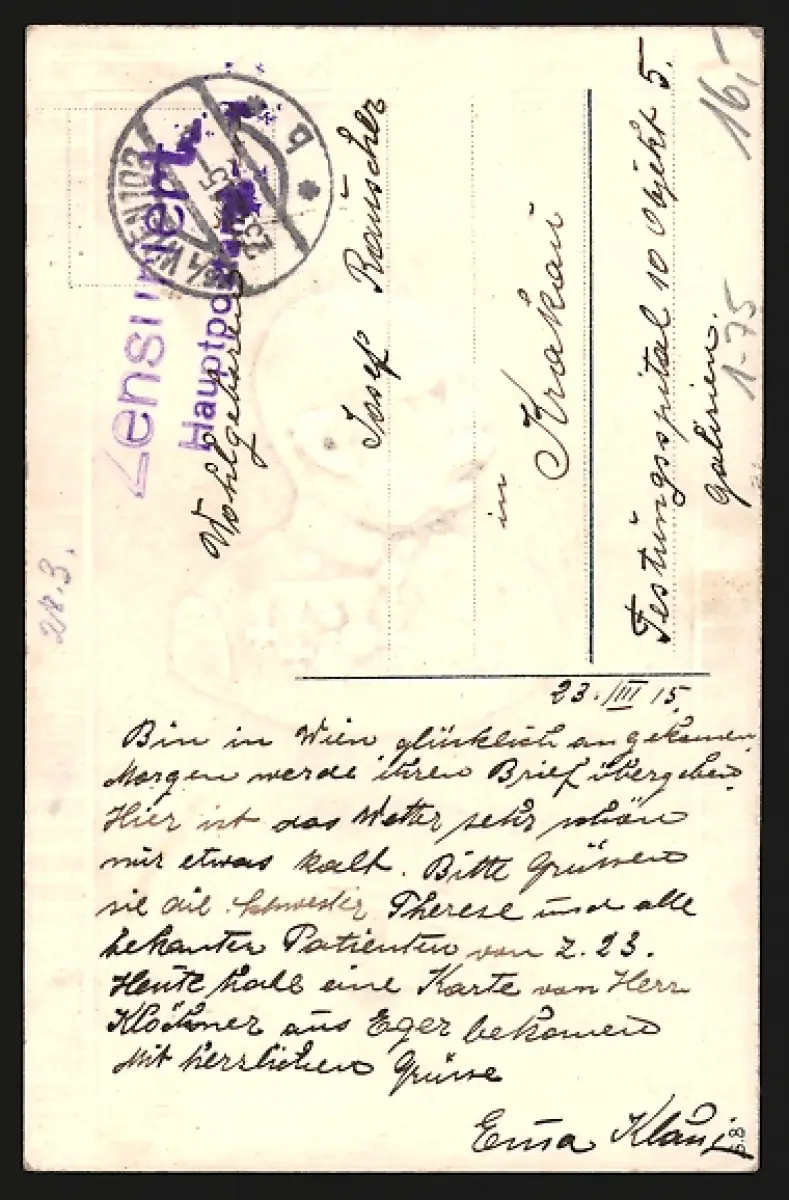 16,-
1-75
28.3.
WIEN 103
b
Zensuriert
Hauptpo
Wohlgeboren
Josef Rauscher
in
Krakau
Festungsspital 10 Objekt 5.
Galizien.
23. III 15.
Bin in Wien glücklich angekomen.
Morgen werde ihren Brief übergeben.
Hier ist das Wetter sehr schön
nur etwas kalt. Bitte Grüssen
sie die Schwester Therese und alle
bekanten Patienten von Z. 23.
Heute habe eine Karte von Herr
Klöckner aus Eger bekomen
Mit herzlichen Grüsse